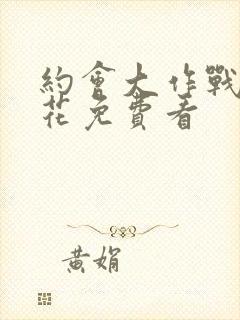 約會大作戰
花免費看
黃娟